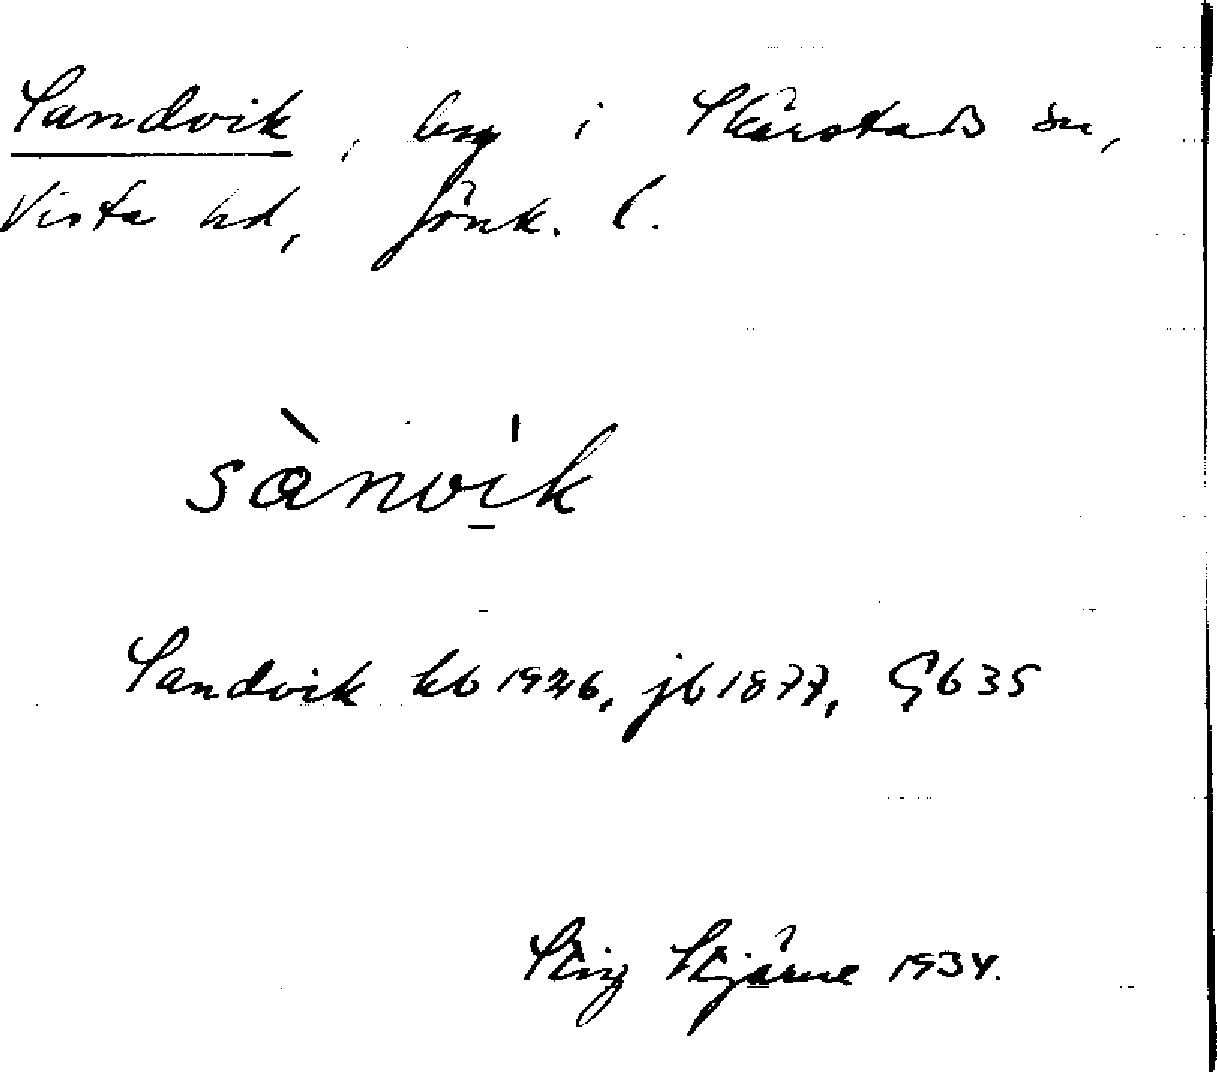 Sandvik, by i Skärstads sn,
Vista hd, Jönk. l.
sànvi̠k
Sandvik kb 1926, jb 1877, Gb 35
Stig Stjärne 1934.